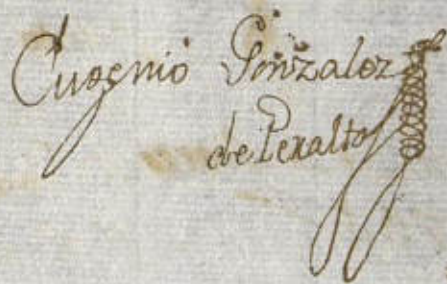 Eugenio Gonzalez
de Peralta